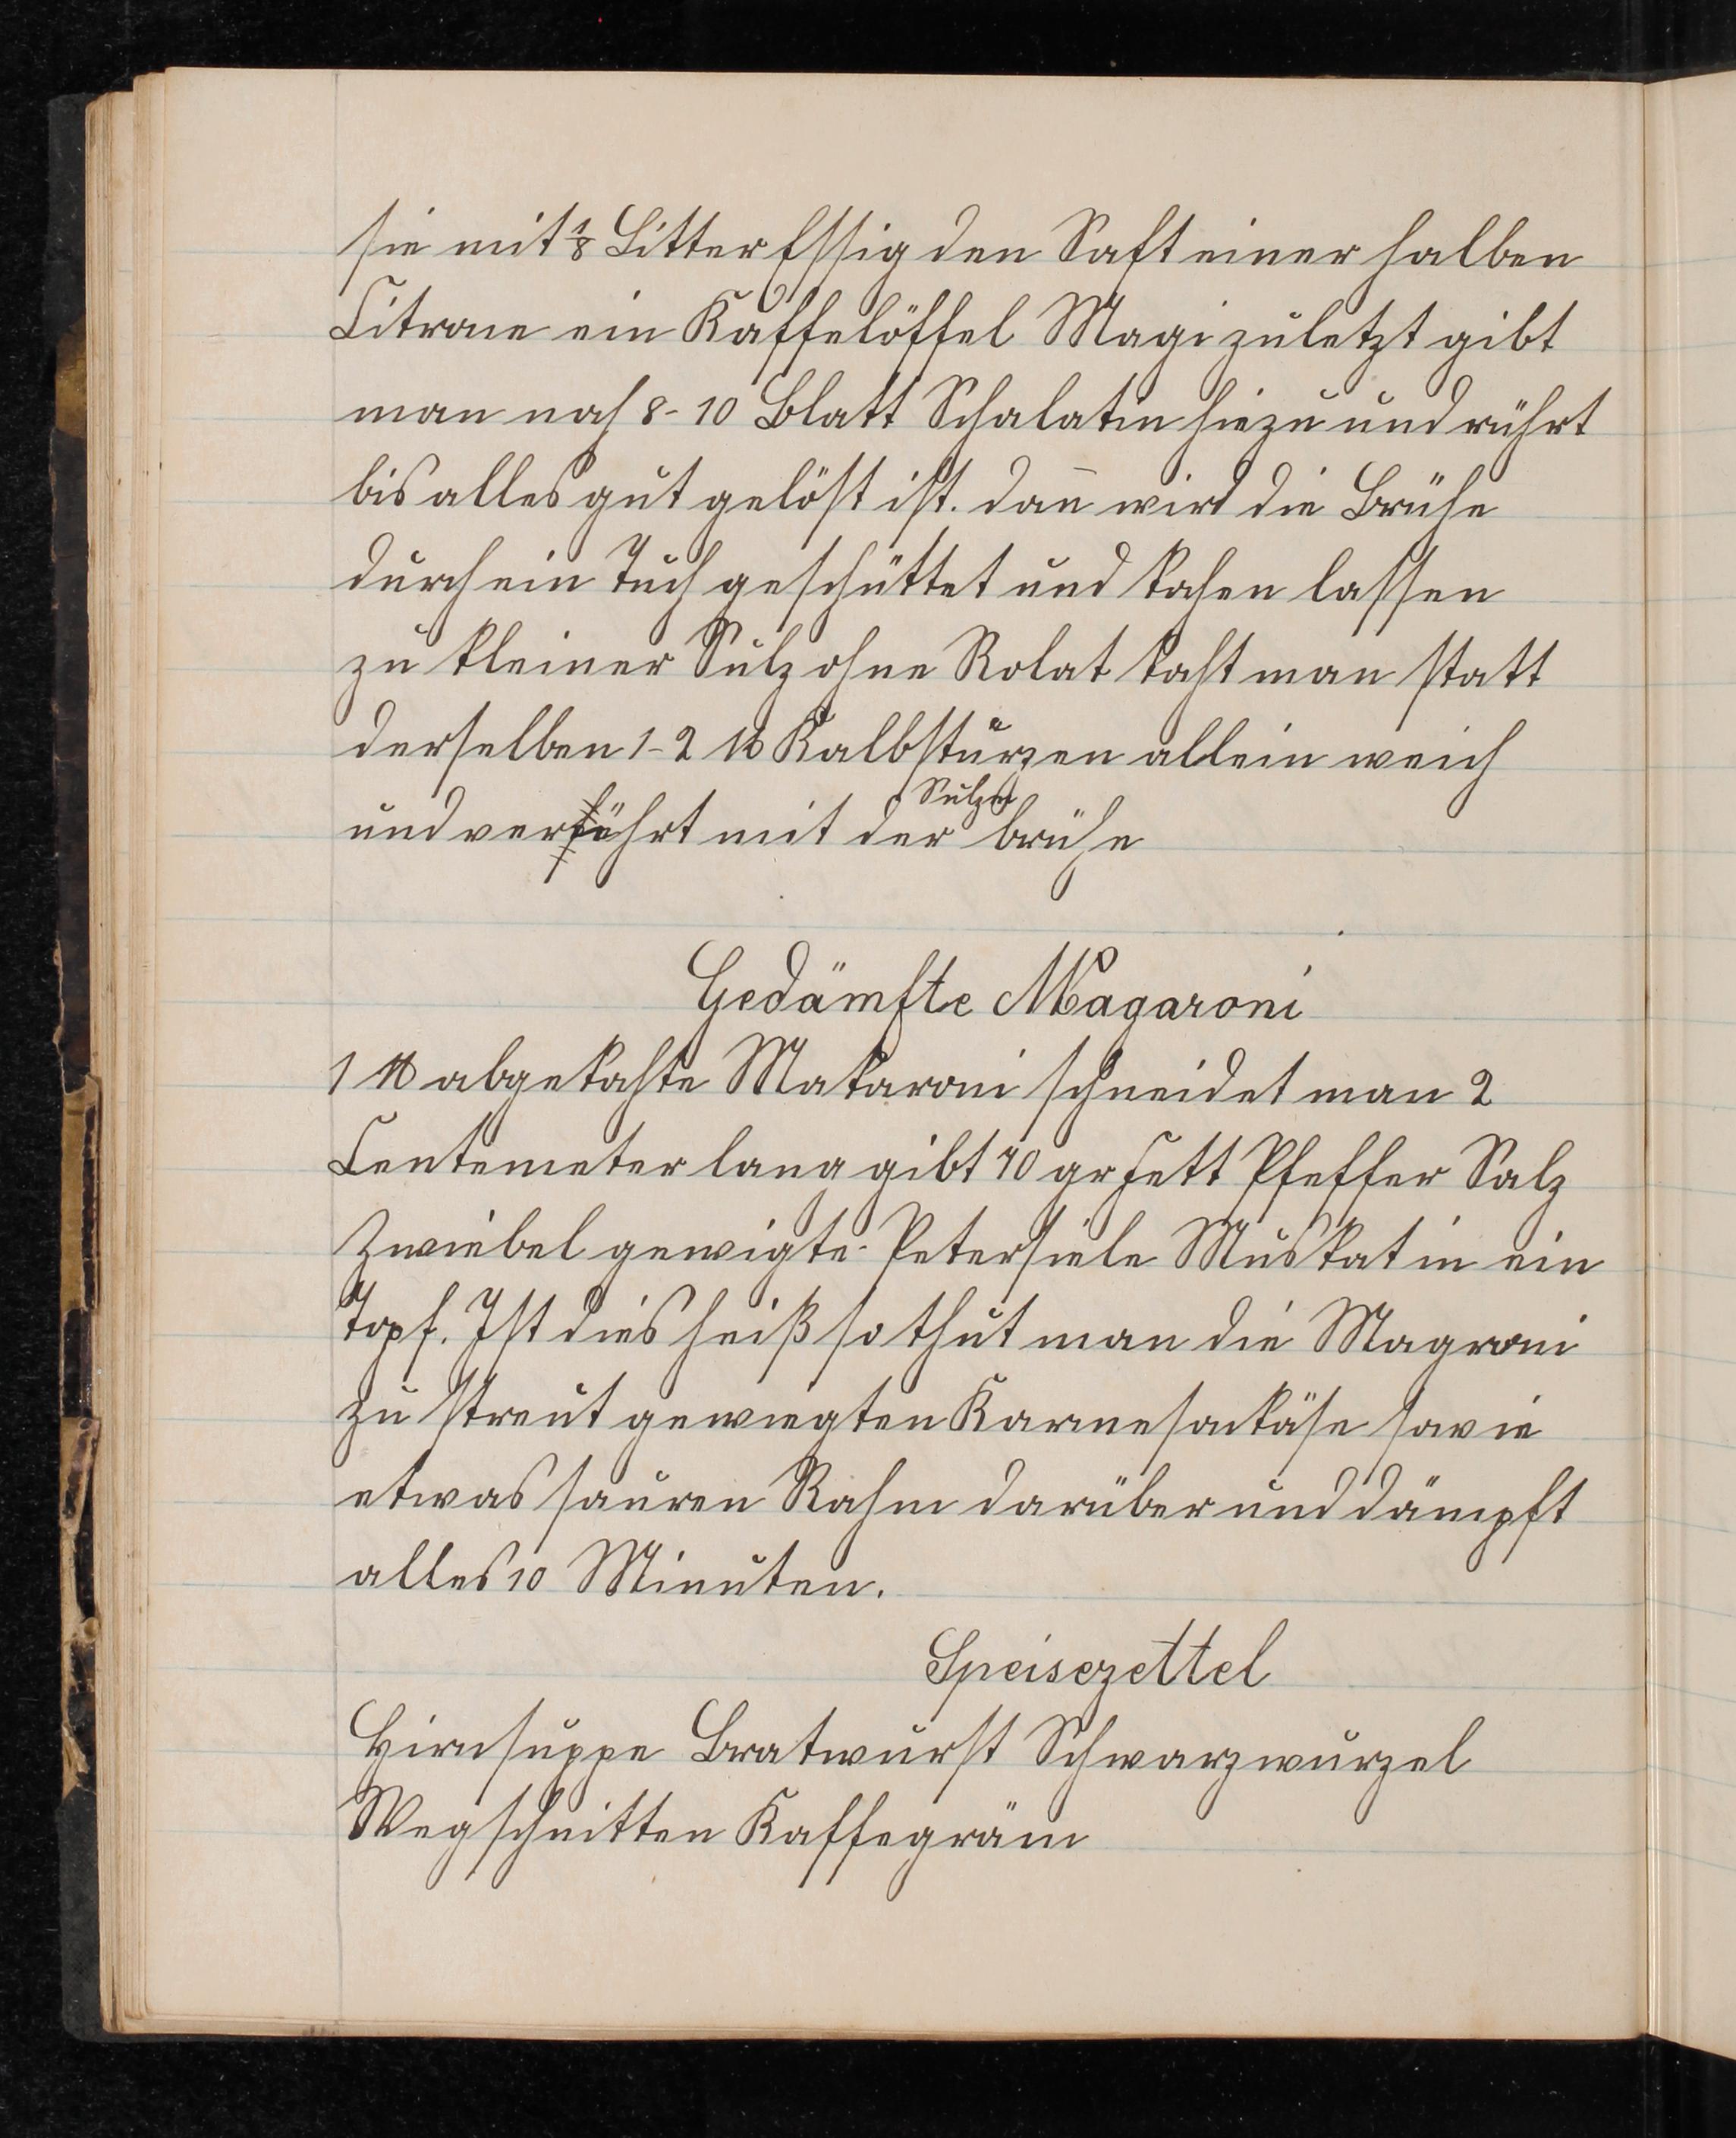 sie mit ⅛ Litter Essig den Saft einer halben
Citrone ein Kaffelöffel Magi zuletzt gibt
man noch 8-10 Blatt Schalatin hiezu und rührt
bis alles gut gelöst ist. dan̄ wird die Brühe
durch ein Tuch geschüttet und kochen lassen
zu kleiner Sulz ohne Rolat kocht man statt
derselben 1-2 ℔ Kalbstürzen allein weich
Sulz
und verfährt mit der brühe
Gedämfte Magaroni
1 ℔ abgekochte Makaroni schneidet man 2
Centemeter lang gibt 70 gr Fett Pfeffer Salz
Zwiebel gewigte Petersiele Muskat in ein
Topf. Ist dies heiß so thut man die Magroni
zu streut gewiegten Karmesonkäse sowie
etwas sauren Rahm darüber und dämpft
alles 10 Minuten.
Speisezettel
Hirnsuppe Bratwurst Schwarzwurzel
Wegschnitten Kaffegräm